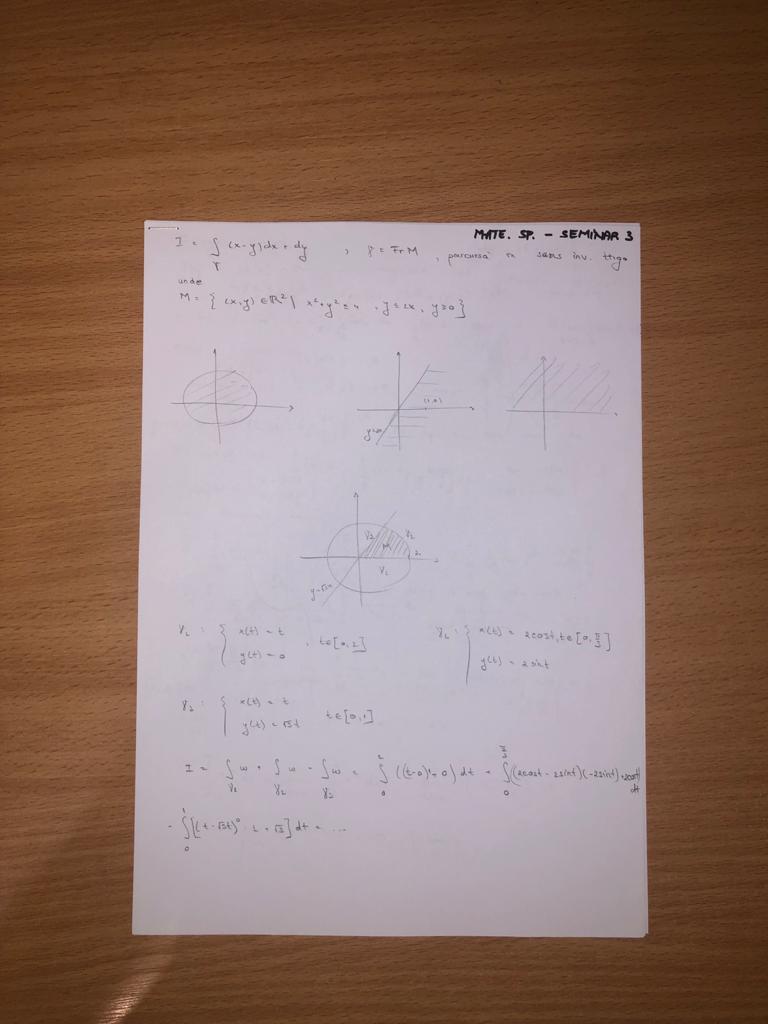 MATE. SP. - SEMINAR 3
I = ∫ (x-y)dx + dy , γ = Fr M , parcursă în sens inv. trigo
γ
unde
M = { (x,y) ∈ ℝ² | x²+y² ≤ 4 , y ≤ , y ≥ 0 }
(1,0)
γ3 γ2
M
2
γ1
y=√3x
γ1 : { x(t) = t
y(t) = 0 , t∈[0,2]
γ2 : { x(t) = 2cost, t∈[0, π/3]
y(t) = 2sint
γ3 : { x(t) = t
y(t) = √3t t∈[0,1]
I = ∫γ1 ω + ∫γ2 ω - ∫γ3 ω = ∫₀² ((t-0)·1+0) dt + ∫₀^(π/3) ((2cost - 2sint)(-2sint)+2cost) dt
- ∫₀¹ [(t-√3t)·1+√3] dt = ...